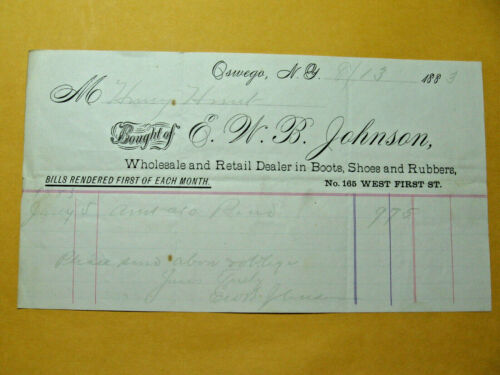 Oswego, N.Y. 9/13 1883
M Harry
Bought of E. W. B. Johnson,
Wholesale and Retail Dealer in Boots, Shoes and Rubbers,
BILLS RENDERED FIRST OF EACH MONTH.
No. 165 WEST FIRST ST.
5 975
Please send above & oblige
Yours Truly
E W B Johnson